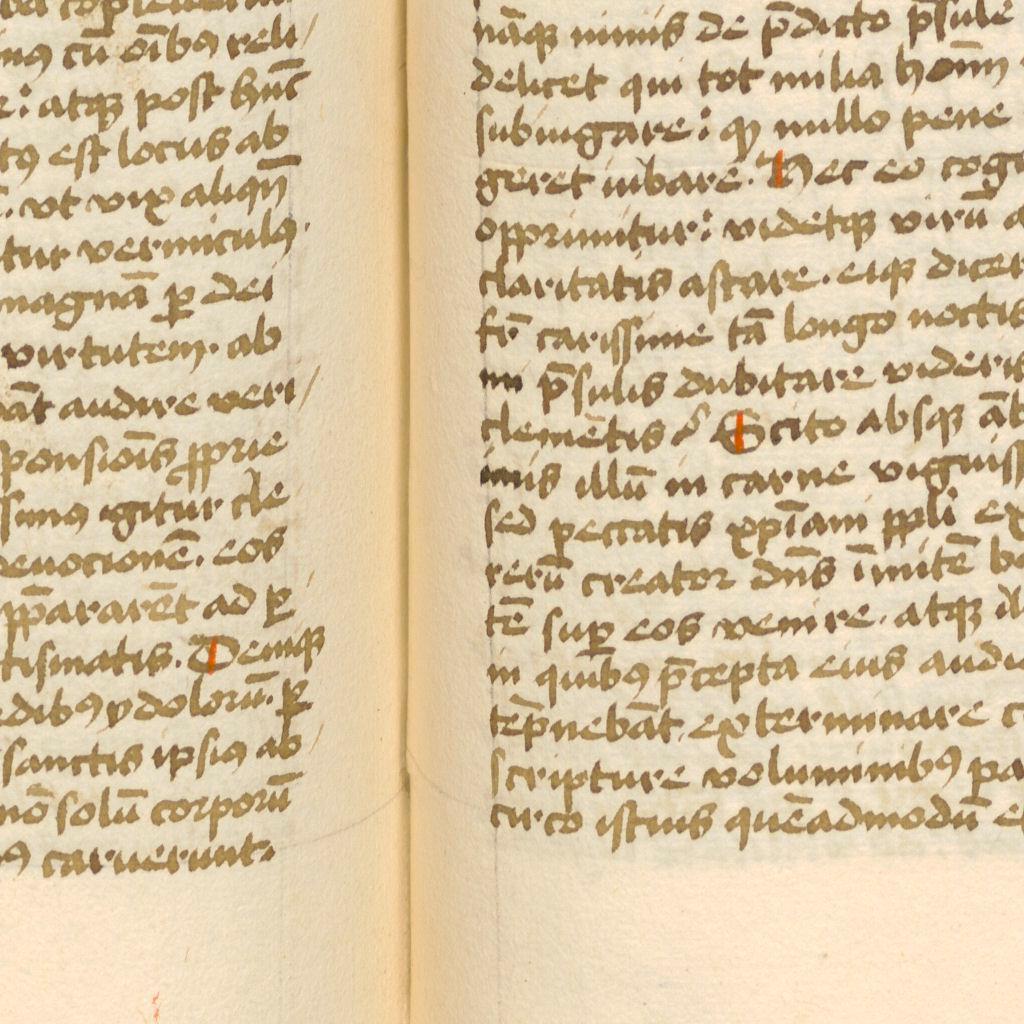 cū oībꝯ reli/
atqꝫ post hūc
est locus ab
vt vix aliqn̄
tur vermiculꝰ.
magnā ꝑ dei
virtutem. ab
audire veri/
ponsiōis ꝓprie
simꝰ igitur cle
euocionē. eos
p̄pararēt ad ꝑ
tismatis. Deniqꝫ
edibꝰ ⁊ dolorū. ꝑ
sanctis ipsiꝰ ab/
nō solū corporū
caruerunt.
nāqꝫ nimis de p̄dicto p̄sule
delicet qui tot milia hoīm
subiugare: qꝫ nullo pene
geret iubare. Hec eo cogi
opprimitur: videtqꝫ virū a
claritatis astare. eiqꝫ dicer
fr̄ carissime tā longo noctis
ni p̄sulis dubitare videris
clemētis? Scito absqꝫ āb
inis illū in carne viguiss
sed peccatis xp̄iani ppli ex
rerū creator dn̄s īmitē bo
tē suꝑ eos venire. atqꝫ il
in quibꝰ p̄cepta eius audi
tēpnebāt. exterminare c
scripture voluminibꝰ pa
circo istius quēadmodū e